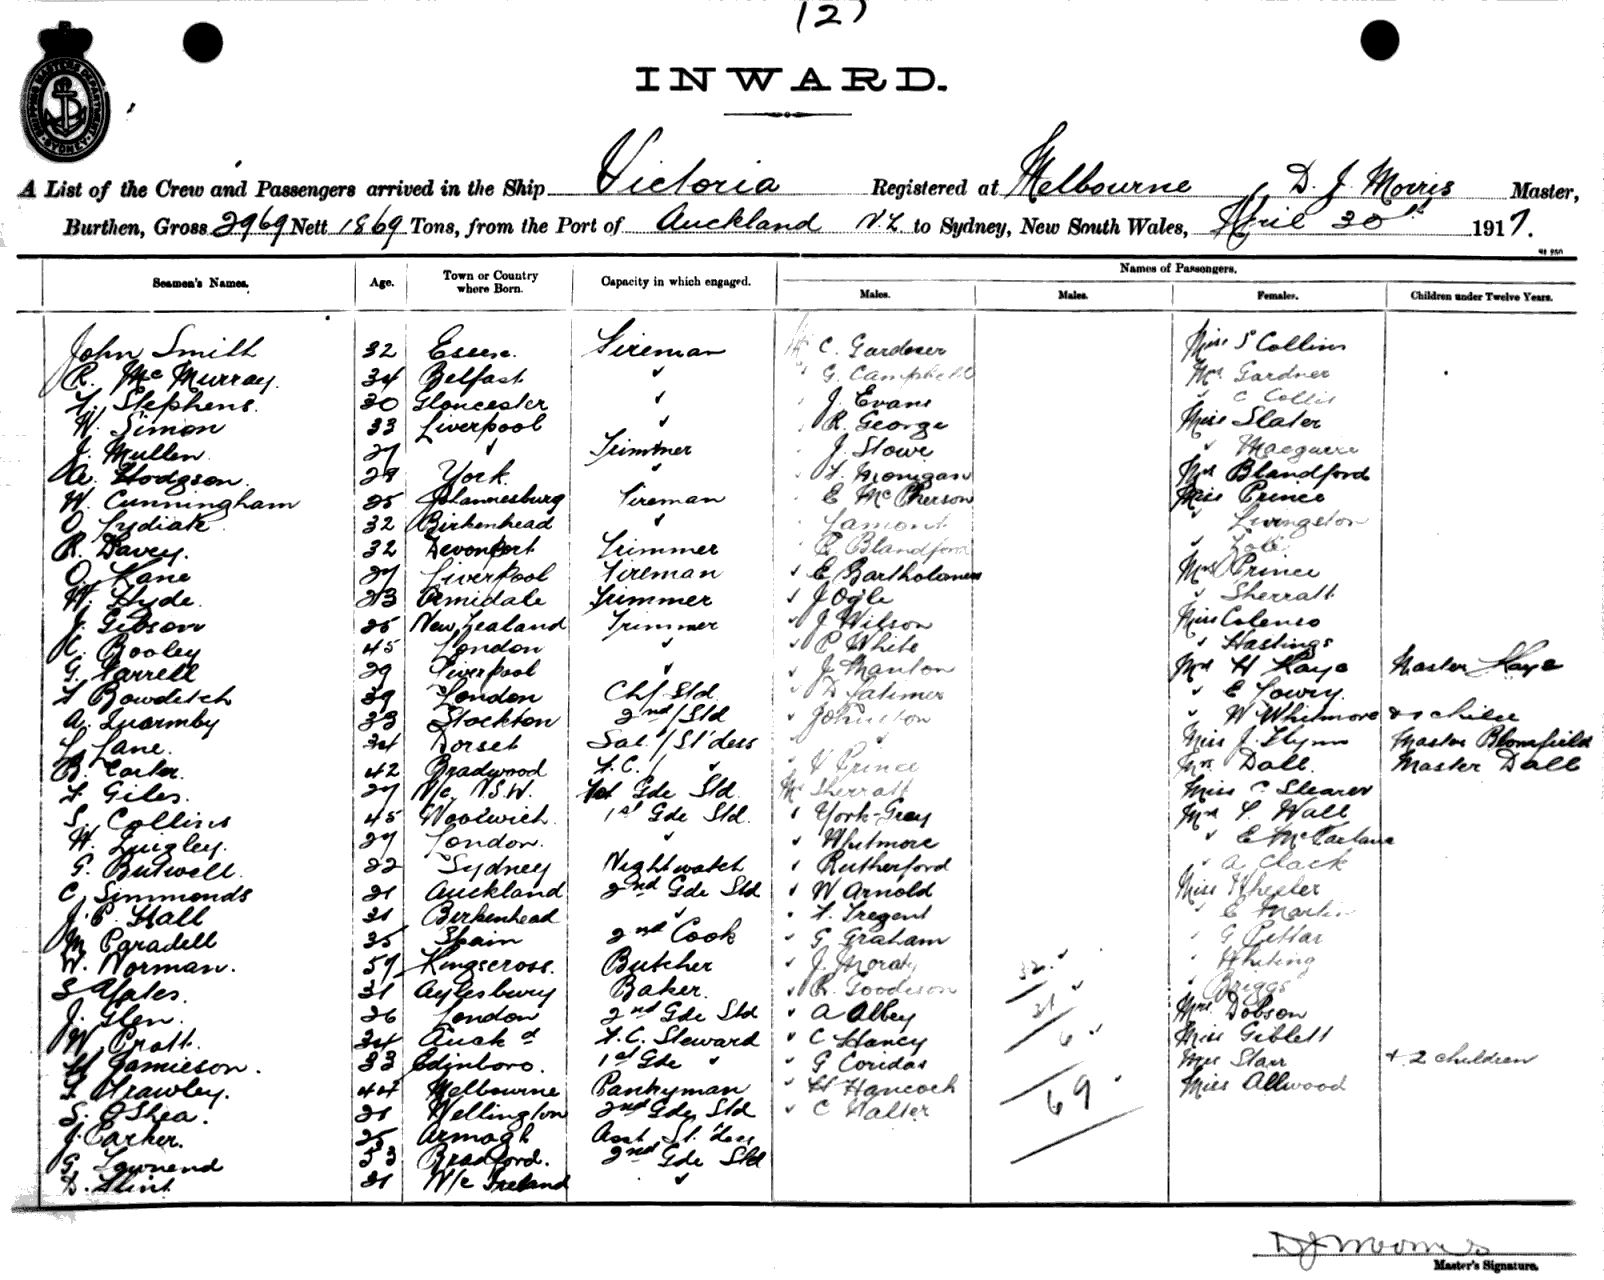 (2)
INWARD.
A List of the Crew and Passengers arrived in the Ship Victoria Registered at Melbourne D. J. Morris Master,
Burthen, Gross 2969 Nett 1869 Tons, from the Port of Auckland N.Z. to Sydney, New South Wales, April 30th 1917.
Seamen's Names. Age. Town or Country where Born. Capacity in which engaged. Names of Passengers.
Males. Males. Females. Children under Twelve Years.
John Smith 32 Essex. Fireman C. Gardner Miss S Collins
R. McMurray. 34 Belfast " G. Campbell Mrs Gardner
F. Stephens. 30 Gloucester " J. Evans " C Collis
W. Simon 33 Liverpool " R. George Miss Slater
J. Mullen. 27 " Trimmer J. Stowe "
A. Hodgson. 29 York. " F. Monigan Mrs Blandford
W. Cunningham 25 Johannesburg Fireman E McPherson Miss Prince
O. Lydiate 32 Birkenhead " Lamont " Livingston
R. Davey. 32 Devonport Trimmer Blandford "
O. Kane 27 Liverpool Fireman E Bartholomew Mrs Prince
W. Hyde. 23 Armidale Trimmer J Ogle " Sherratt
J. Gibson 25 New Zealand Trimmer J Wilson Miss Colenso
C. Booley 45 London " P White " Hastings
G. Farrell 29 Liverpool " J. Manton Mrs H Kaye Master Kaye
F Bowditch 39 London Chf Std. D Latimer " E Lowry.
A. Quarmby 33 Stockton 2nd/Std Johnston " W Whitmore & 1 child
L. Lane. 34 Dorset Sal./St'dess " Miss J. Flynn Master Blomfield
B. Carter. 42 Bradwood F.C./ " Prince Mrs Dall. Master Dall
F Giles. 27 N/c N.S.W. 1st Gde Std. Mr Sherratt Miss C Stearer
S. Collins 45 Woolwich. 1st Gde Std. York-Gray Mrs Wall
H. Lugley. 27 London. " Whitmore " E McFarlane
G. Butwell. 22 Sydney Nightwatch Rutherford " A. Clack
C. Simmonds 21 Auckland 2nd Gde Std W Arnold Miss Wheeler
J. P. Hall 21 Birkenhead " F. Tregent " E Martin
M Paradell 35 Spain 2nd Cook G Graham " G Pettar
W. Norman. 57 Kingscross. Butcher J. Moraty " Whiting
S Yates. 31 Aylesbury Baker. R. Goodison 32 " Briggs
J. Glen. 26 London 2nd Gde Std A Albey 31 Mrs Dobson
W Pratt. 34 Auckd F.C. Steward C Hancy 6 Miss Giblett
H Jamieson. 33 Edinboro. 1st Gde " G Coridas Mrs Starr + 2 children
F Frawley. 44 Melbourne Pantryman H Hancock 69 Miss Allwood
S. O'Shea. 21 Wellington 2nd Gde Std C Halter
J. Parker. 25 Armagh Asst St.
G. Townend 53 Bradford. 2nd Gde Std
D. Flint 21 N/c Ireland "
D J Morris
Master's Signature.